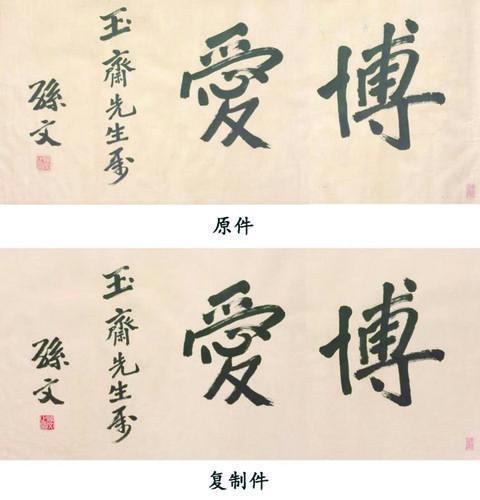 博愛
玉齋先生属
孫文
原件
博愛
玉齋先生属
孫文
复制件